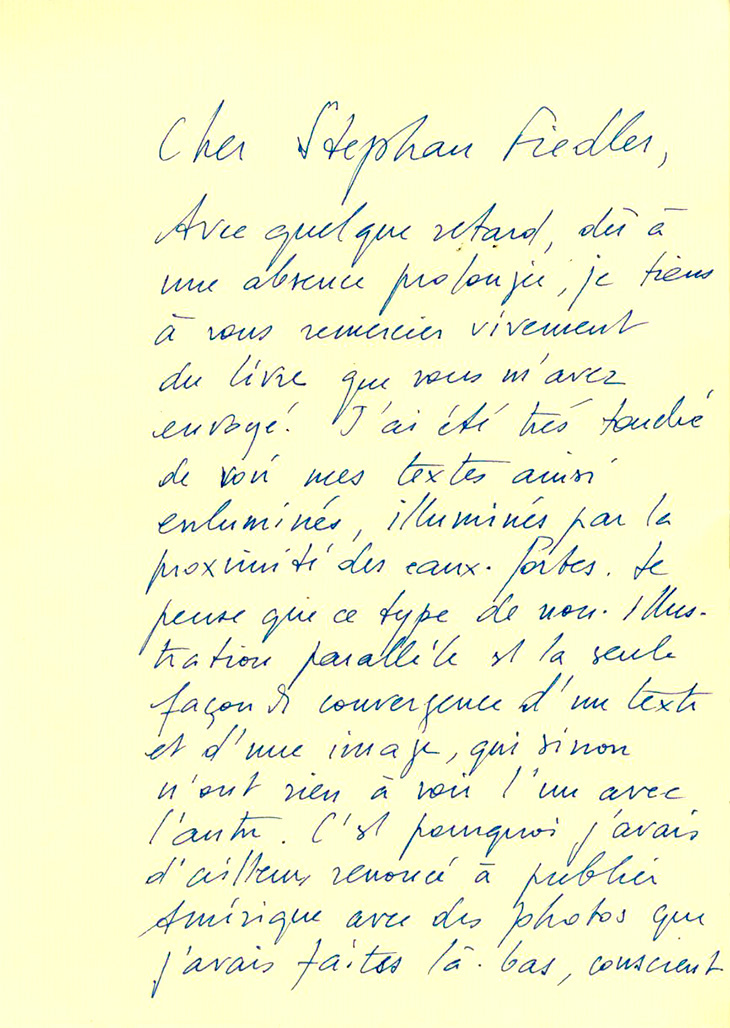 Cher Stephan Fiedler,
Avec quelque retard, dû à
une absence prolongée, je tiens
à vous remercier vivement
du livre que vous m'avez
envoyé. J'ai été très touché
de voir mes textes ainsi
enluminés, illuminés par la
proximité des eaux-fortes. Je
pense que ce type de non-illus-
tration parallèle est la seule
façon de convergence d'un texte
et d'une image, qui sinon
n'ont rien à voir l'un avec
l'autre. C'est pourquoi j'avais
d'ailleurs renoncé à publier
Amérique avec des photos que
j'avais faites là-bas, conscient